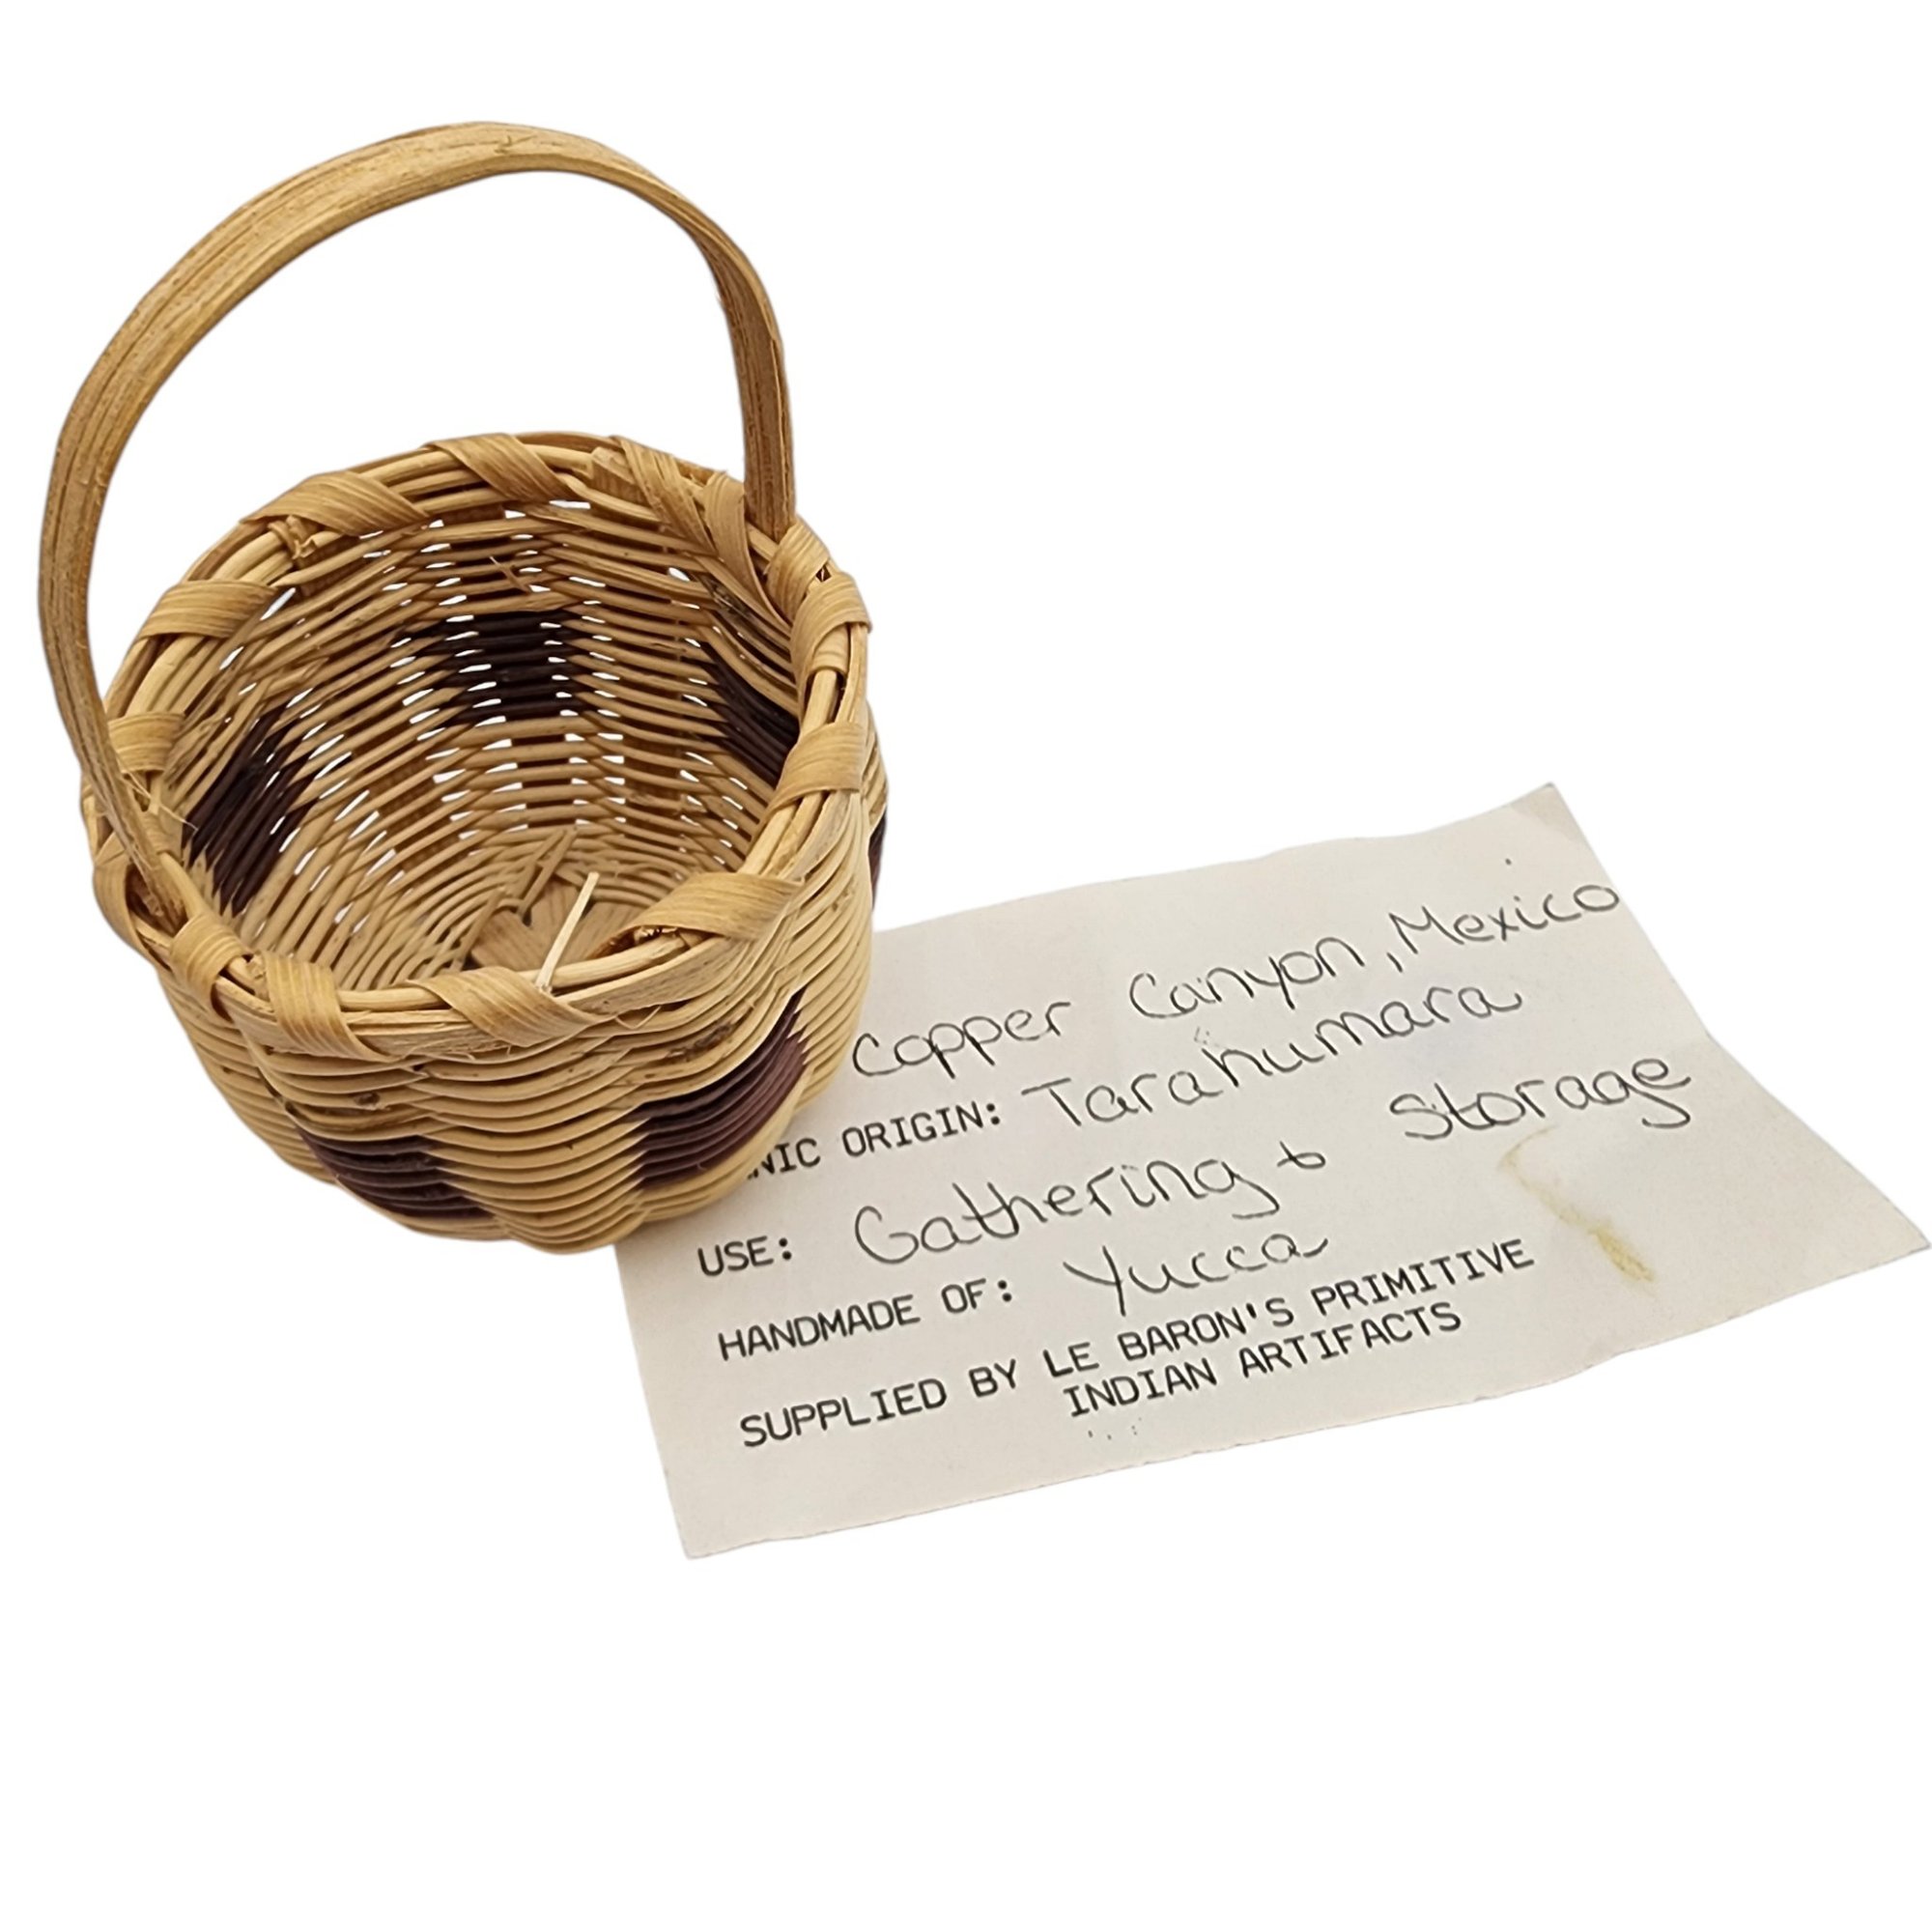 Copper Canyon, Mexico
NIC ORIGIN: Tarahumara
USE: Gathering & Storage
HANDMADE OF: Yucca
SUPPLIED BY LE BARON'S PRIMITIVE
INDIAN ARTIFACTS